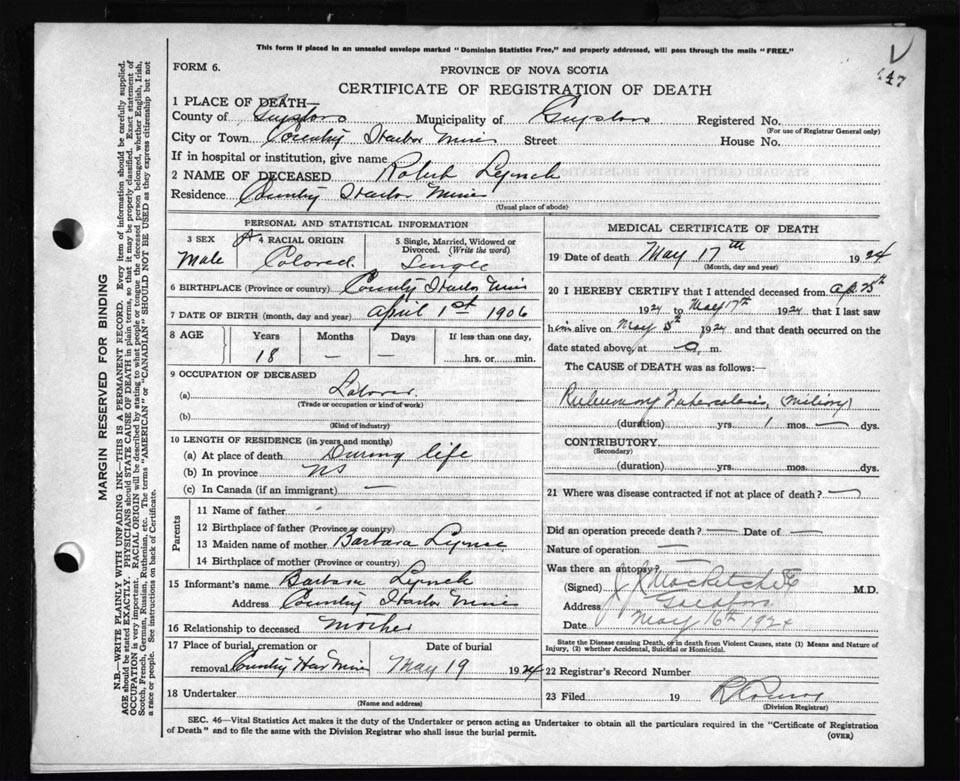 This form if placed in an unsealed envelope marked "Dominion Statistics Free," and properly addressed, will pass through the mails "FREE."
FORM 6.
PROVINCE OF NOVA SCOTIA
447
CERTIFICATE OF REGISTRATION OF DEATH
1 PLACE OF DEATH—
County of Guysboro Municipality of Guysboro Registered No.
(For use of Registrar General only)
City or Town Country Harbor Mines Street House No.
If in hospital or institution, give name
2 NAME OF DECEASED Robert Lynch
Residence Country Harbor Mines
(Usual place of abode)
PERSONAL AND STATISTICAL INFORMATION
3 SEX 4 RACIAL ORIGIN 5 Single, Married, Widowed or Divorced. (Write the word)
Male Colored. Single
6 BIRTHPLACE (Province or country) Country Harbor Mines
7 DATE OF BIRTH (month, day and year) April 1st 1906
8 AGE Years Months Days If less than one day,
18 — — hrs. or min.
9 OCCUPATION OF DECEASED
(a) Laborer.
(Trade or occupation or kind of work)
(b)
(Kind of industry)
10 LENGTH OF RESIDENCE (in years and months)
(a) At place of death During life
(b) In province NS
(c) In Canada (if an immigrant) —
Parents
11 Name of father
12 Birthplace of father (Province or country)
13 Maiden name of mother Barbara Lynch
14 Birthplace of mother (Province or country)
15 Informant's name Barbara Lynch
Address Country Harbor Mines
16 Relationship to deceased Mother
17 Place of burial, cremation or removal Country Har Mines Date of burial May 19 1924
18 Undertaker
(Name and address)
MEDICAL CERTIFICATE OF DEATH
19 Date of death May 17th 1924
(Month, day and year)
20 I HEREBY CERTIFY that I attended deceased from Ap. 25th
1924 to May 17th 1924 that I last saw
him alive on May 5th 1924 and that death occurred on the
date stated above, at a. m.
The CAUSE of DEATH was as follows:—
Pulmonary Tuberculosis, (Miliary)
(duration) yrs. 1 mos. — dys.
CONTRIBUTORY
(Secondary)
(duration) yrs. mos. dys.
21 Where was disease contracted if not at place of death? —
Did an operation precede death? — Date of —
Nature of operation —
Was there an autopsy?
(Signed) M.D.
Address
Date May 16th 1924
State the Disease causing Death, or in death from Violent Causes, state (1) Means and Nature of Injury, (2) whether Accidental, Suicidal or Homicidal.
22 Registrar's Record Number
23 Filed 19
(Division Registrar)
SEC. 46—Vital Statistics Act makes it the duty of the Undertaker or person acting as Undertaker to obtain all the particulars required in the "Certificate of Registration of Death" and to file the same with the Division Registrar who shall issue the burial permit.
(OVER)
MARGIN RESERVED FOR BINDING
N.B.—WRITE PLAINLY WITH UNFADING INK—THIS IS A PERMANENT RECORD. Every item of information should be carefully supplied.
AGE should be stated EXACTLY. PHYSICIANS should STATE CAUSE OF DEATH in plain terms, so that it may be properly classified. Exact statement of
OCCUPATION is very important. RACIAL ORIGIN will be described by stating to what people or tongue the deceased person belonged, whether English, Irish,
Scotch, French, German, Russian, Ruthenian, etc. The terms "AMERICAN" or "CANADIAN" SHOULD NOT BE USED as they express citizenship but not
a race or people. See instructions on back of Certificate.